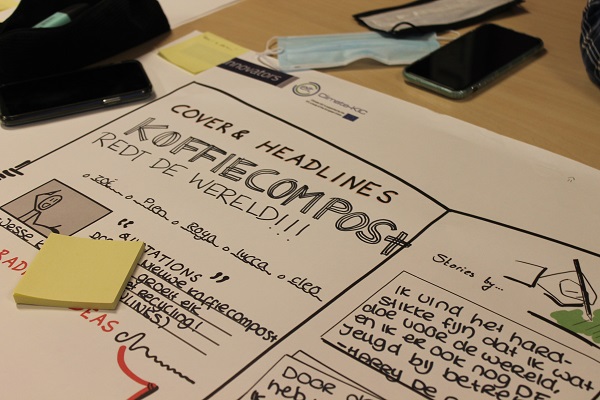 nnovators
Climate-KIC
COVER & HEADLINES
KOFFIECOMPOST
REDT DE WERELD!!!
Zoë
Pien
Roya
Lucca
Clea
"QUOTATIONS"
nieuwe koffiecompost
groeit elk
recycling!
LINKS)
RAD
EAS
Stories by...
IK VIND HET HARD-
STIKKE FIJN DAT IK WAT
DOE VOOR DE WERELD,
EN IK ER OOK NOG DE
JEUGD BIJ BETRE
-HARRY DE
DOOR
HEB
IK